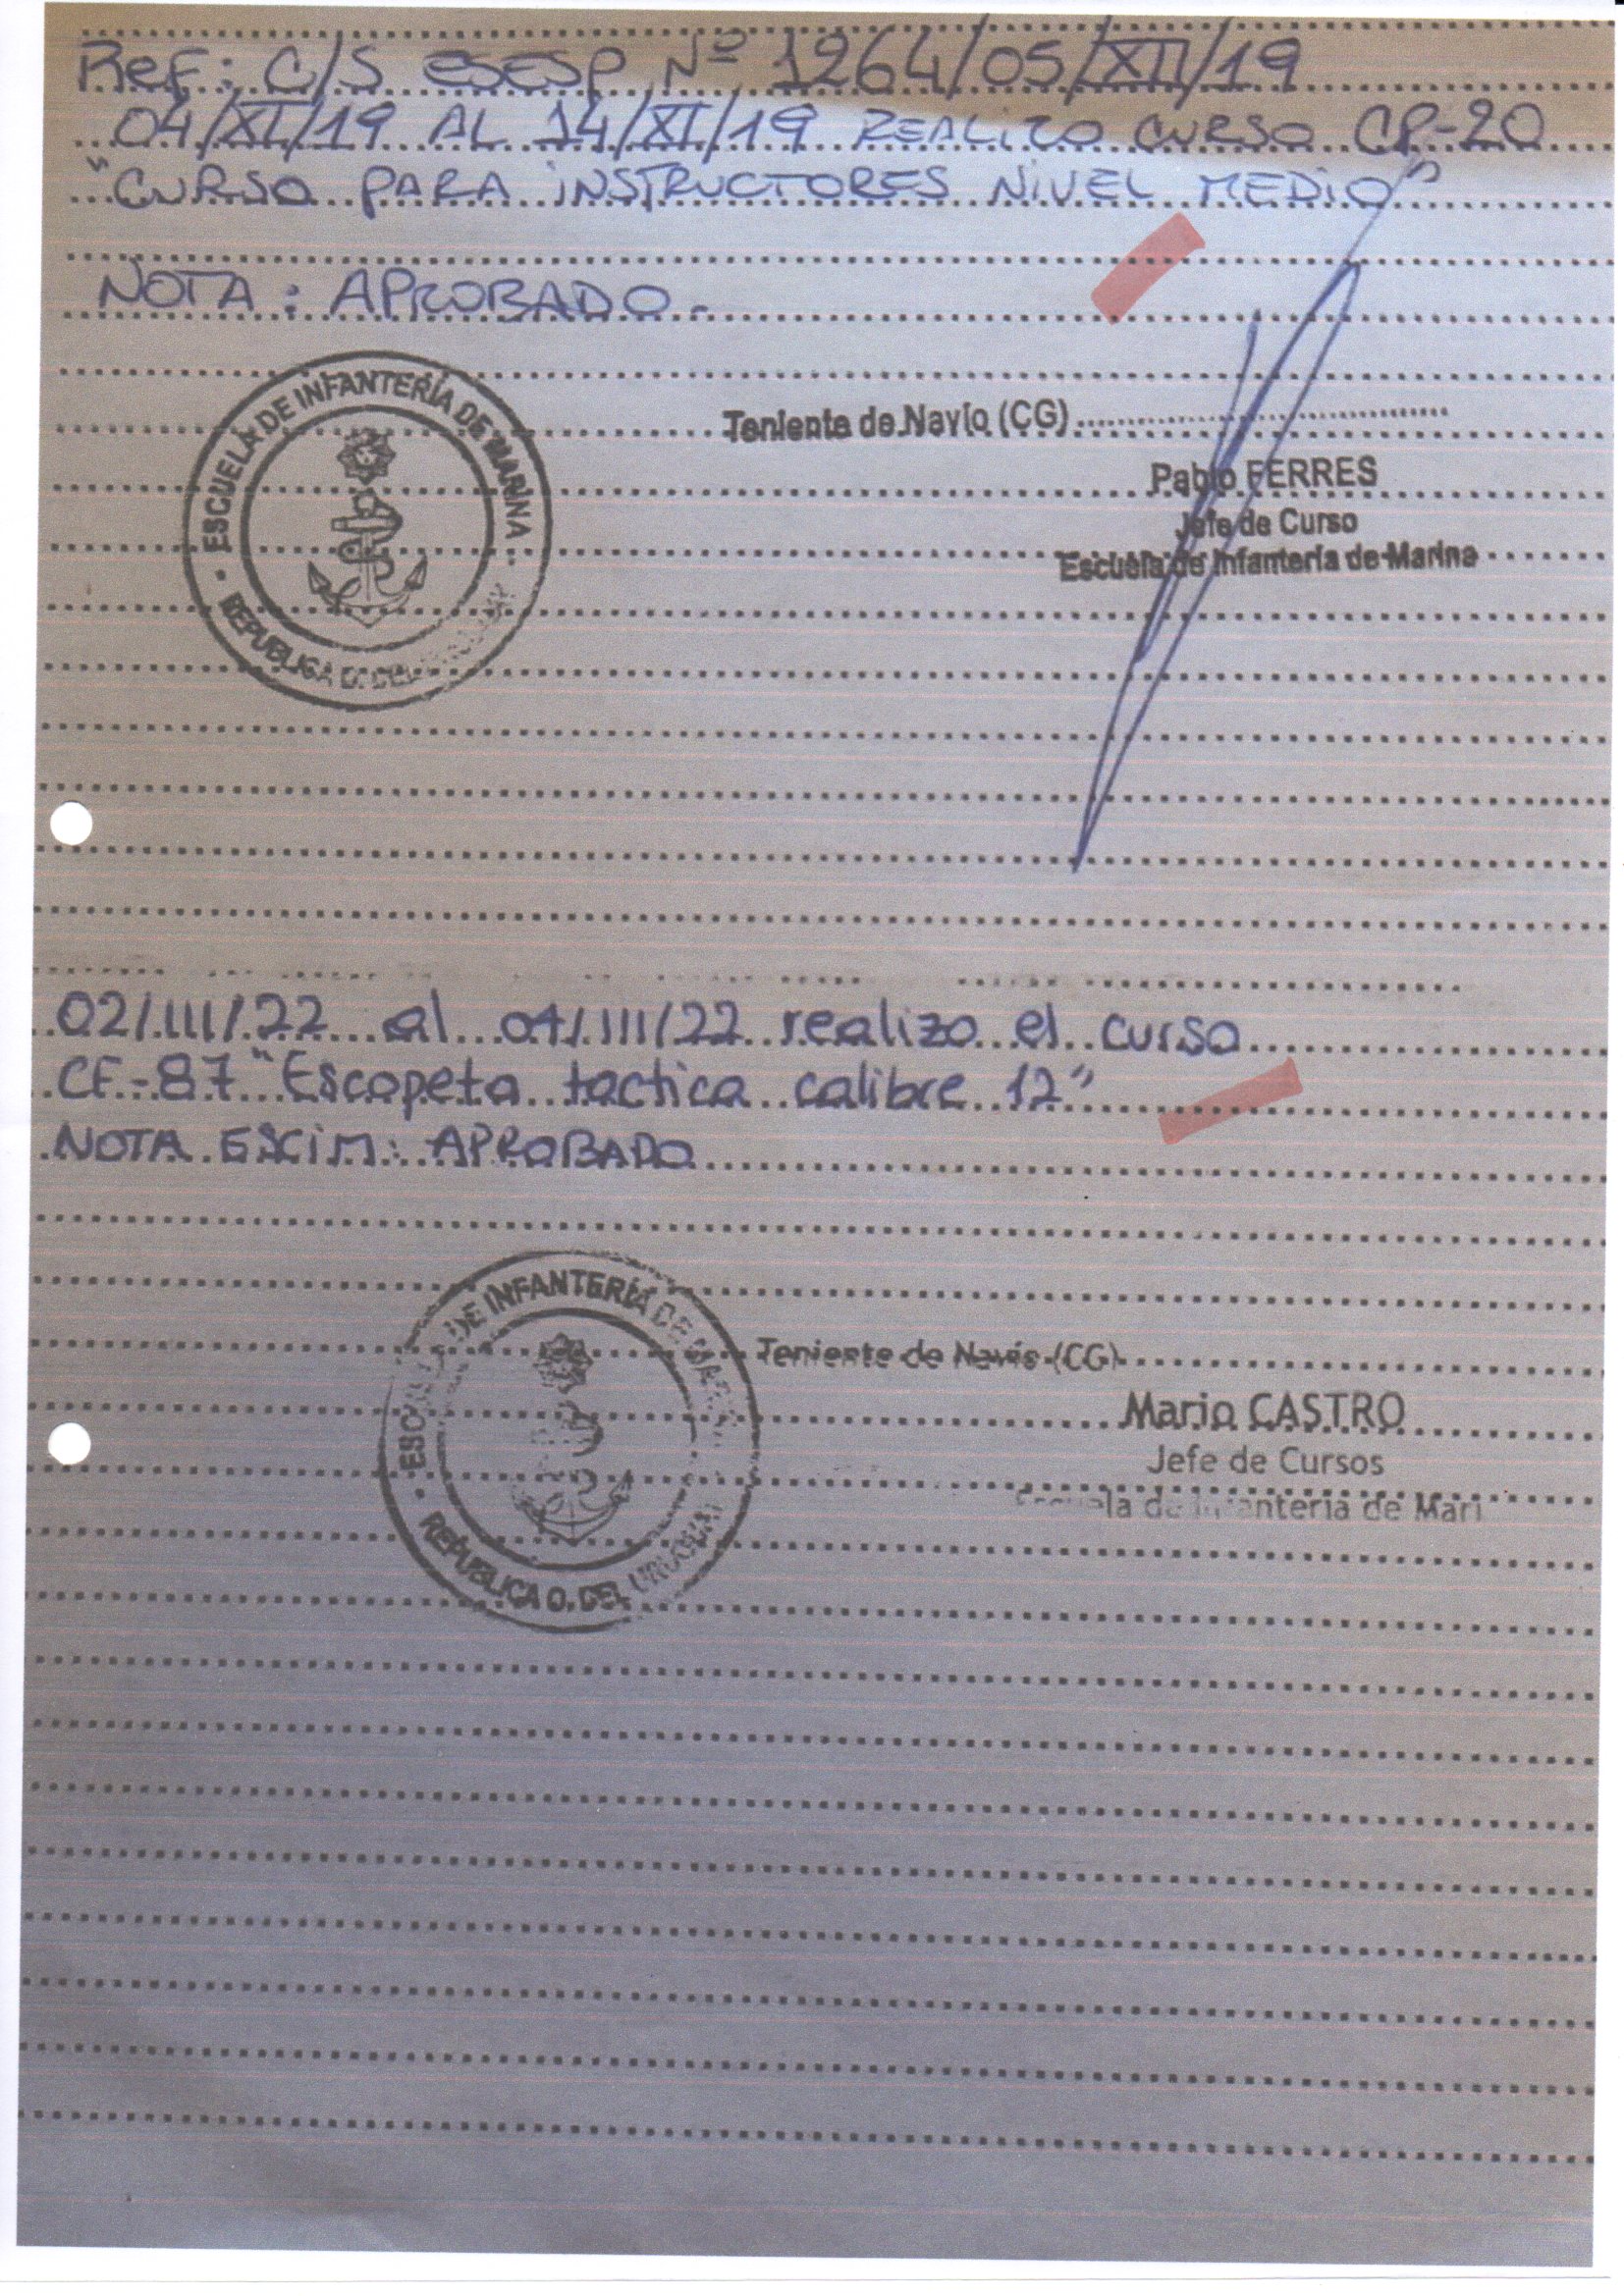 Ref: C/S ESESP Nº 1264/05/XII/19
04/XI/19 AL 14/XI/19 REALIZO CURSO CP-20
"CURSO PARA INSTRUCTORES NIVEL MEDIO"
NOTA: APROBADO.-
ESCUELA DE INFANTERÍA DE MARINA
REPUBLICA O. DEL
Teniente de Navío (CG)
Pablo FERRES
Jefe de Curso
Escuela de Infantería de Marina
02/III/22 al 04/III/22 realizo el curso
CF-87 "Escopeta tactica calibre 12"
NOTA ESCIM: APROBADO
DE INFANTERÍA DE
REPUBLICA O. DEL URUGUAY
Teniente de Navío (CG)
Mario CASTRO
Jefe de Cursos
de Infantería de Mari